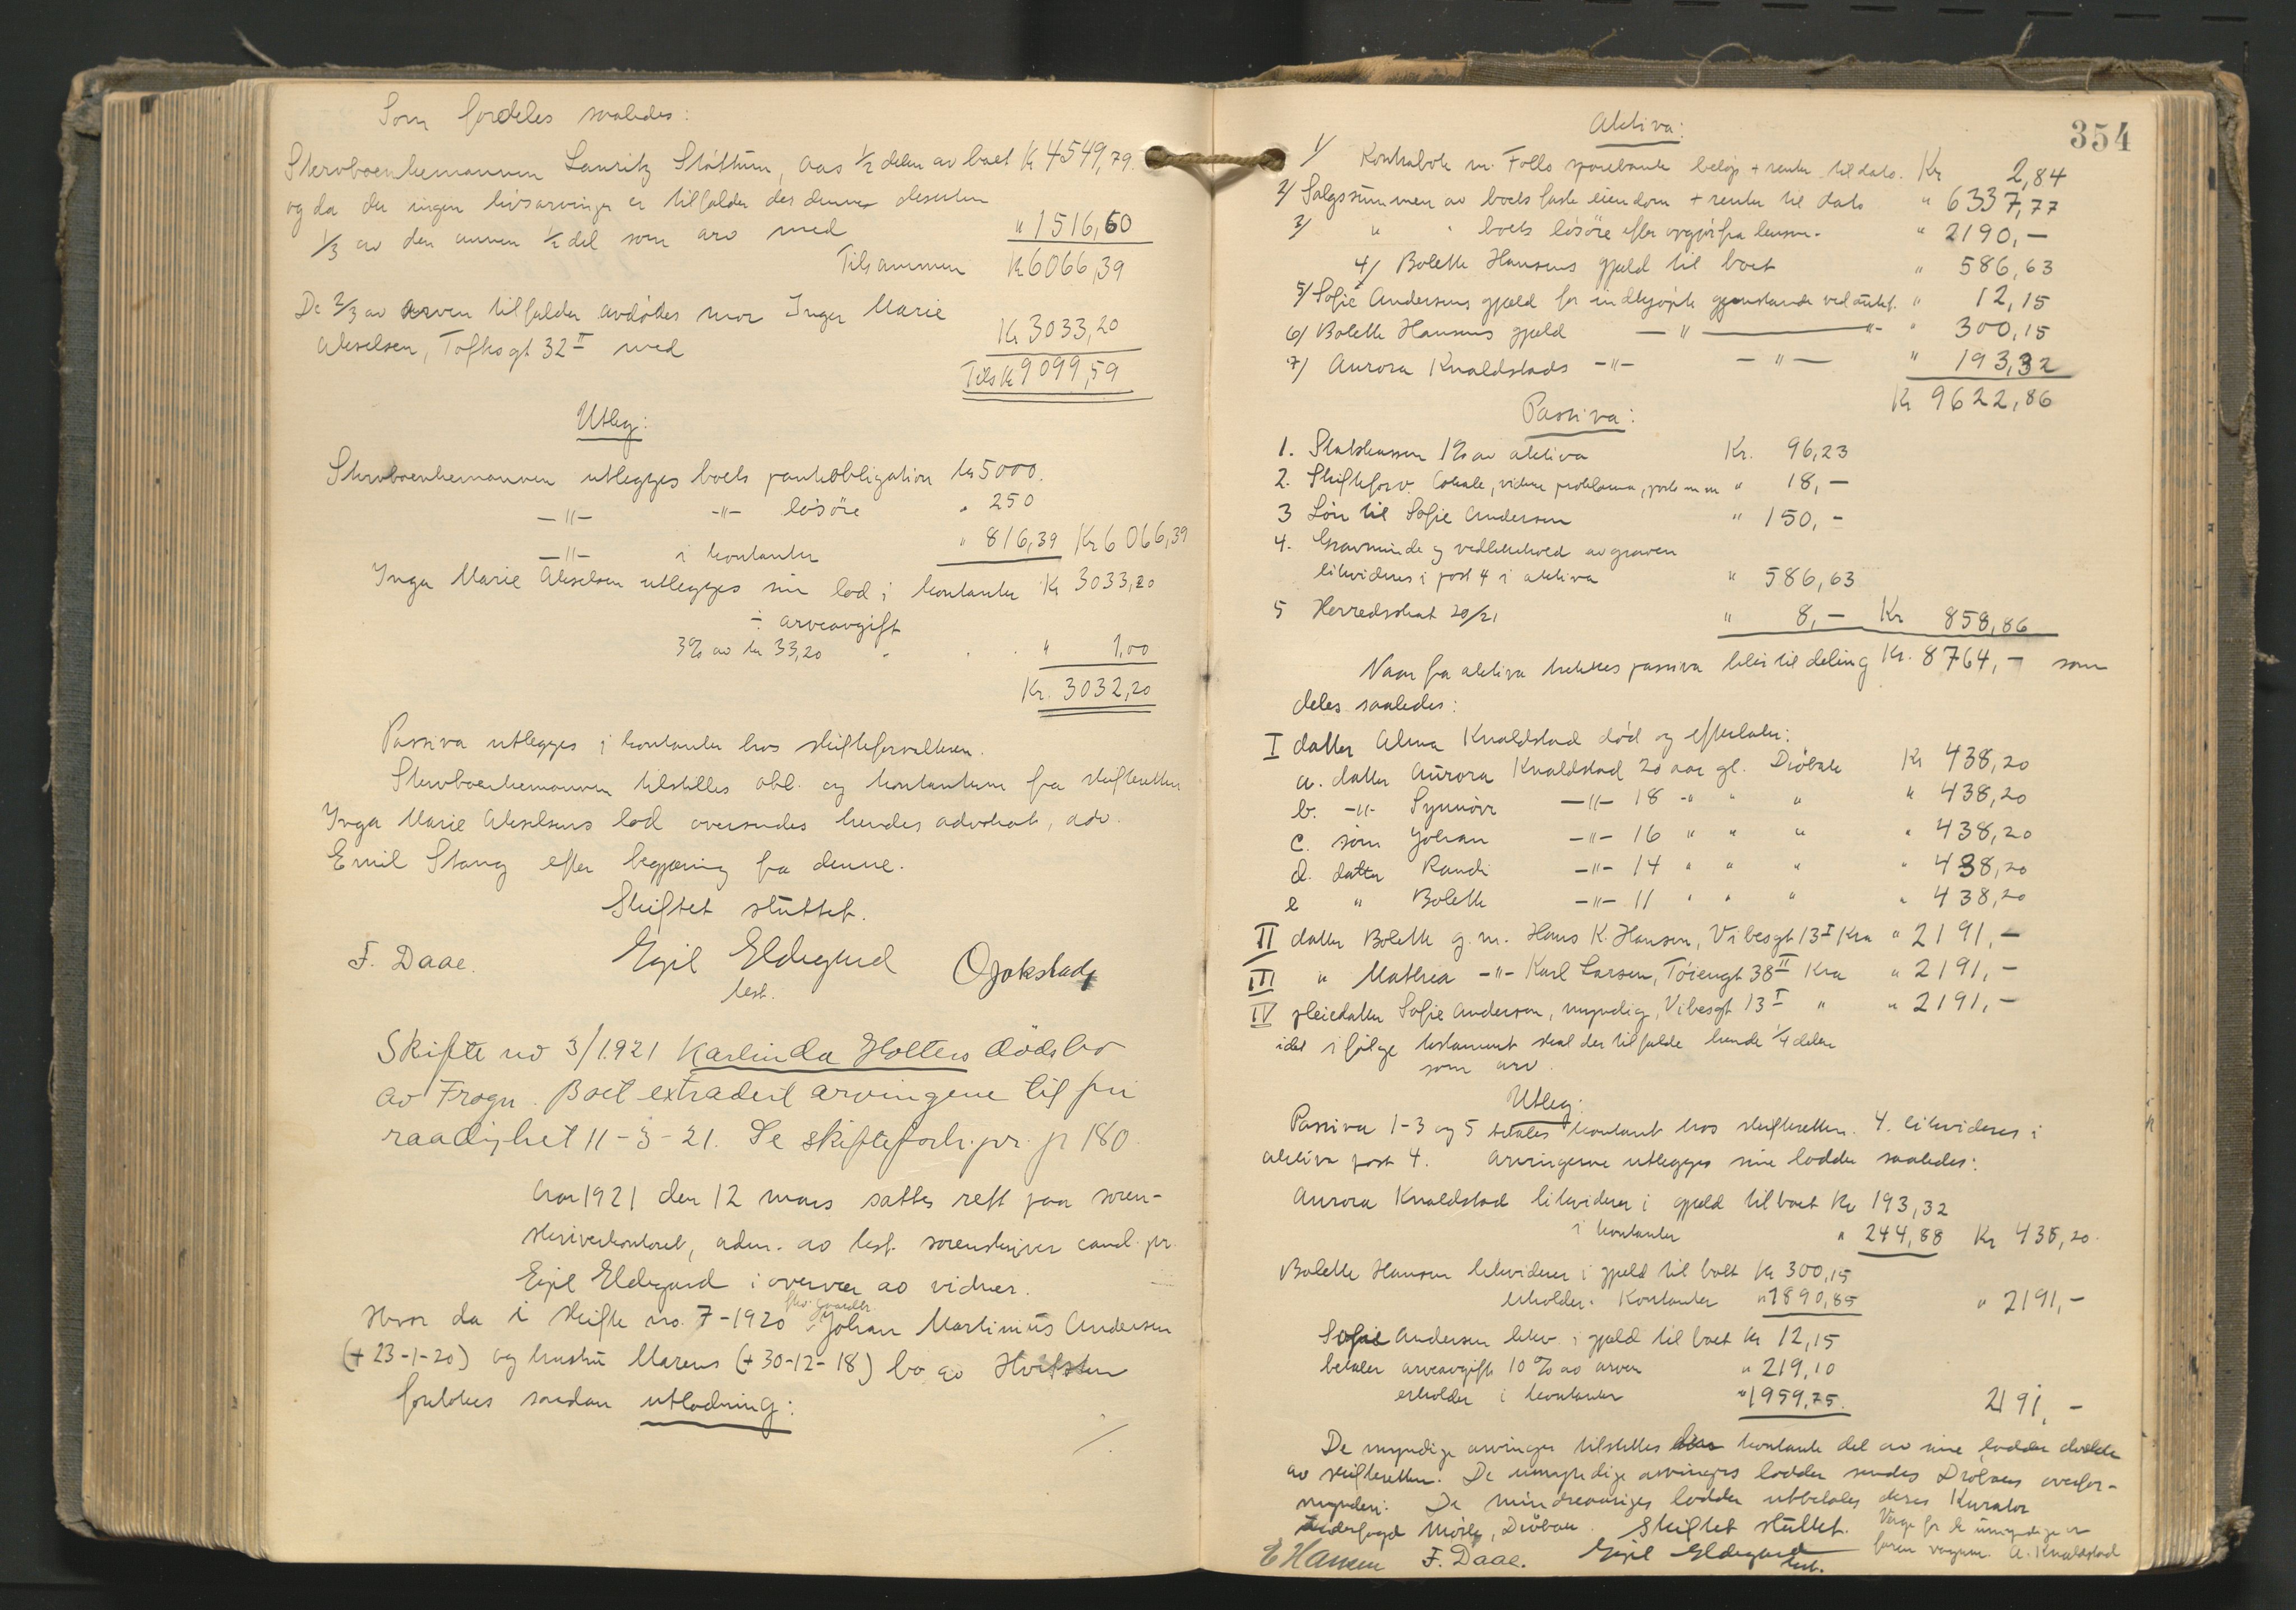 Som fordeles saaledes:
Skrvboenkemannen Lauritz Støttum, Aas 1/2 delen av boet Kr 4549,79.
og da der ingen livsarvinger er tilfalder der denne desuten
1/3 av den annen 1/2 del som arv med " 1516,60
Tilsammen Kr 6066,39
De 2/3 av arven tilfalder avdødes mor Inga Marie
Akselsen, Toftesgt 32 II med Kr 3033,20
Tils Kr 9099,59
Utlæg:
Skrvboenkemannen utlegges boets pantobligation kr 5000.
—"— -"- løsøre " 250
—"— i kontanter " 816,39 Kr 6066,39
Inga Marie Akselsen utlegges sin lod i kontanter Kr 3033,20
÷ arveavgift
3% av kr 33,20 " 1,00
Kr. 3032,20
Passiva utlegges i kontanter hos skifteforvalteren.
Skrvboenkemannen tilstilles obl. og kontantene fra skifteretten
Inga Marie Akselsens lod oversendes hendes advokat, adv.
Emil Stang efter begjæring fra denne.
Skiftet sluttet.
F. Daae. Egil Eldegard OJokstad
test.
Skifte no 3/1921 Karlinda Holters dødsbo
av Frogn. Boet extradert arvingene til fri
raadighet 11-3-21. Se skifteforh. pr. p 180.
Aar 1921 den 12 mars sattes rett paa soren-
skriverkontoret, adm. av test. sorenskriver cand. jur.
Egil Eldegard i overvær av vidner.
Hvor da i skifte no. 7-1920 fhv. Gaardbr. Johan Martinius Andersen
(+ 23-1-20) og hustru Marens (+ 30-12-18) bo av Hvitsten
foretokes saadan utlodning:
./.
354
Aktiva:
1/ Kontrabok m. Follo sparebanks beløp + renter til dato. Kr 2,84
2/ Salgssummen av boets faste eiendom + renter til dato " 6337,77
3/ " " boets løsøre efter opgjør fra lensm. " 2190,—
4/ Bolette Hansens gjæld til boet " 586,63
5/ Sofie Andersens gjæld for indkjøpte gjenstande ved aukt. " 12,15
6/ Bolette Hansens gjæld —"— —"— " 300,15
7/ Aurora Knaldstads —"— —"— " 193,32
Kr 9622,86
Passiva:
1. Statskassen 1% av aktiva Kr. 96,23
2. Skifteforv. lokale, vidner proklama, porto m m " 18,—
3 Løn til Sofie Andersen " 150,-
4. Gravminde og vedlikehold av graven
likvideres i post 4 i aktiva " 586,63
5 Herredsskat 20/21 " 8,— Kr 858,86
Naar fra aktiva trekkes passiva blir til deling Kr. 8764,— som
deles saaledes:
I datter Alma Knaldstad død og efterlater:
a. datter Aurora Knaldstad 20 aar gl. Drøbak Kr 438,20
b. -"- Synnøve —"— 18 " " " " 438,20
c. søn Johan —"— 16 " " " " 438,20
d. datter Randi —"— 14 " " " " 438,20
e " Bolette —"— 11 " " " " 438,20
II datter Bolette g. m. Hans K. Hansen, Vibesgt 13 I Kra " 2191,—
III " Mathea —"— Karl Larsen, Tøiengt 38 II Kra " 2191,—
IV pleiedatter Sofie Andersen, myndig, Vibesgt 13 I " " 2191,—
idet ifølge testament skal der tilfalde hende 1/4 delen
som arv.
Utleg:
Passiva 1-3 og 5 betales kontant hos skifteretten. 4. likvideres i
aktiva post 4. Arvingerne utlegges sine lodder saaledes:
Aurora Knaldstad likviderer i gjæld til boet Kr 193,32
i kontanter " 244,88 Kr 438,20
Bolette Hansen likviderer i gjæld til boet Kr 300,15
erholder kontanter " 1890,85 " 2191,—
Sofie Andersen likv. i gjæld til boet kr 12,15
betaler arveavgift 10% av arven " 219,10
erholder i kontanter " 1959,75. 2191,—
De myndige arvinger tilstilles kontante del av sine lodder
av skifteretten. De umyndige arvingers lodder sendes Drøbaks overfor-
mynderi. De mindreaariges lodder utbetales deres Kurator
Drøbak. Skiftet sluttet. Verge for de umyndige er
faren A. Knaldstad
E Hansen F. Daae. Egil Eldegard
test.